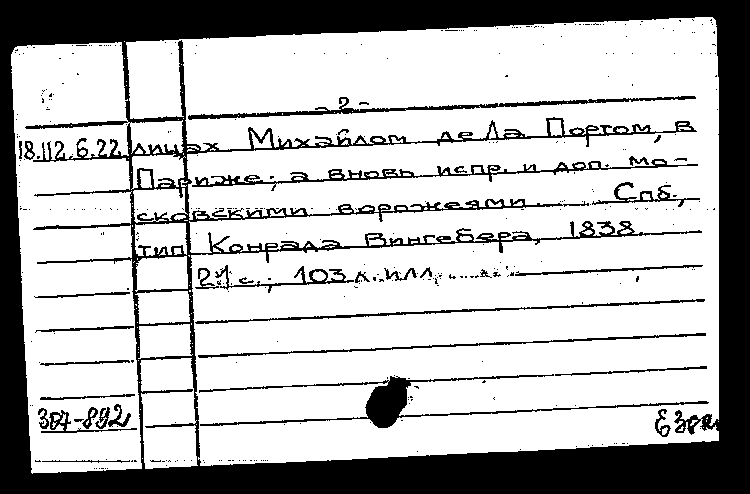 - 2 -
18.112.6.22. лицах Михаблом де Ла Портом, в
Париже; а вновь испр. и доп. мо-
сковскими ворожеями. Спб,
тип Конрада Вингебера, 1838.
21 с.; 103 л. илл.
307-892